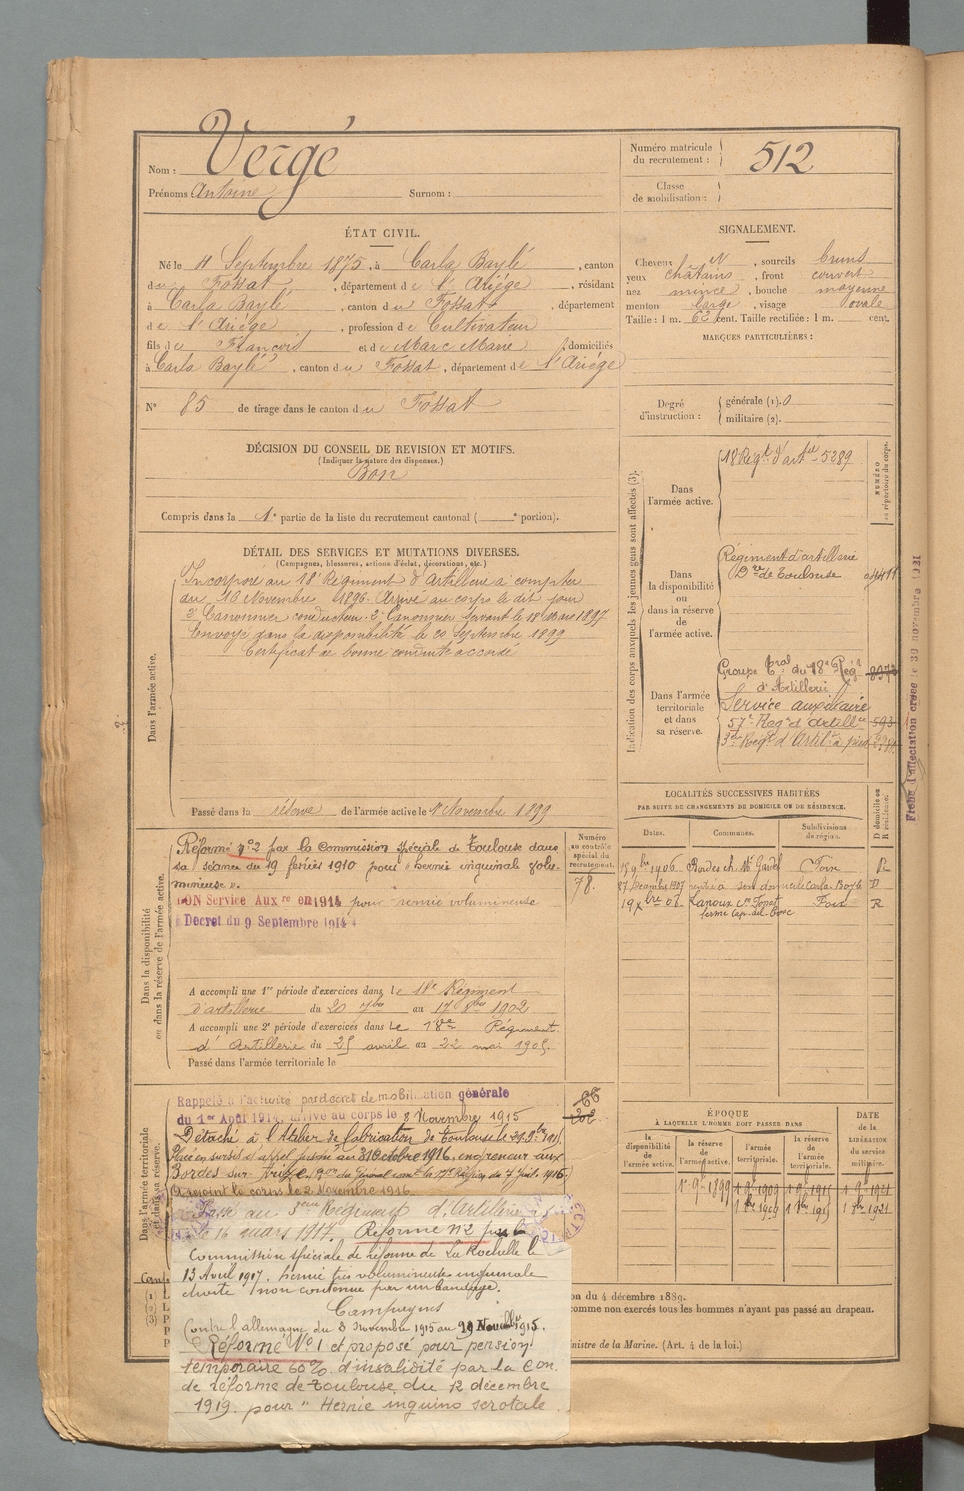 Nom : Vergé
Prénoms Antoine Surnom :
Numéro matricule du recrutement : 512
Classe de mobilisation :
ÉTAT CIVIL.
Né le 4 Septembre 1875, à Carla Baylé, canton
du Fossat, département de l'Ariége, résidant
à Carla Baylé, canton du Fossat, département
de l'Ariége, profession de Cultivateur
fils de François et de Marc Marie, domiciliés
à Carla Baylé, canton du Fossat, département de l'Ariége
N° 85 de tirage dans le canton du Fossat
SIGNALEMENT.
Cheveux N, sourcils bruns
yeux châtains, front couvert
nez mince, bouche moyenne
menton large, visage ovale
Taille : 1 m. 62 cent. Taille rectifiée : 1 m. cent.
MARQUES PARTICULIÈRES :
Degré d'instruction : générale (1). 0
militaire (2).
DÉCISION DU CONSEIL DE REVISION ET MOTIFS.
(Indiquer la nature des dispenses.)
Bon
Compris dans la 1e partie de la liste du recrutement cantonal ( e portion).
DÉTAIL DES SERVICES ET MUTATIONS DIVERSES.
(Campagnes, blessures, actions d'éclat, décorations, etc.)
Dans l'armée active.
Incorporé au 18e Régiment d'Artillerie à compter
du 10 Novembre 1896. Arrivé au corps le dit jour
2e Canonnier conducteur. 2e Canonnier servant le 18 Mars 1897
Envoyé dans la disponibilité le 20 Septembre 1899
Certificat de bonne conduite accordé
Passé dans la réserve de l'armée active le 1er Novembre 1899
Indication des corps auxquels les jeunes gens sont affectés (3).
NUMÉRO au répertoire du corps.
Dans l'armée active.
18 Régt d'artie 5289
Dans la disponibilité ou dans la réserve de l'armée active.
Régiment d'artillerie
Don de Toulouse
Dans l'armée territoriale et dans sa réserve.
Groupe tral du 18e Régt 8973
d'Artillerie
Service auxiliaire
57e Regt d'Artillie 593
3e Regt d'Artile à pied
Fiche d'affectation créée le 30 novembre 1921
LOCALITÉS SUCCESSIVES HABITÉES
PAR SUITE DE CHANGEMENTS DE DOMICILE OU DE RÉSIDENCE.
Dates. Communes. Subdivisions de région. D domicile ou R résidence.
15 9bre 1906 Bordes ch. Mr Foix R
27 Décembre 1907 rentré à son domicile Carla Bayle D
19 Xbre 07 Lanoux cn Fossat Foix R
Dans la disponibilité ou dans la réserve de l'armée active.
Numéro au contrôle spécial du recrutement.
78.
Réformé n°2 par la Commission spéciale de Toulouse dans
sa séance du 19 février 1910 pour "hernie inguinale volu-
mineuse".
BON Service Auxre en 1914 pour hernie volumineuse
Décret du 9 Septembre 1914
A accompli une 1re période d'exercices dans le 18e Régiment
d'artillerie du 20 7bre au 17 8bre 1902
A accompli une 2e période d'exercices dans le 18e Régiment
d'Artillerie du 25 avril au 22 mai 1905.
Passé dans l'armée territoriale le
Dans l'armée territoriale et dans sa réserve.
66
202
Rappelé à l'activité par décret de mobilisation générale
du 1er Août 1914, arrivé au corps le 8 Novembre 1915
Détaché à l'Atelier de fabrication de Toulouse le 29 9bre 1915.
Placé en sursis d'appel jusqu'au 31 Octobre 1916, entrepreneur aux
Bordes sur Arize. Don du Général comt la 17e Région du 7 Juil. 1916.
A rejoint le corps le 2 Novembre 1916.
Passé au 3eme Régiment d'Artillerie à
le 16 mars 1917. Réformé N°2 par la
Commission spéciale de réforme de La Rochelle le
13 Avril 1917. hernie très volumineuse inguinale
droite non contenue par un bandage.
Campagnes
Contre l'allemagne du 8 Novembre 1915 au 29 Novembre 1915.
Réformé N°1 et proposé pour pension
temporaire 60% d'invalidité par la Con.
de réforme de Toulouse du 12 décembre
1919. pour "Hernie inguino scrotale
ÉPOQUE
À LAQUELLE L'HOMME DOIT PASSER DANS
la disponibilité de l'armée active. la réserve de l'armée active. l'armée territoriale. la réserve de l'armée territoriale.
DATE de la LIBÉRATION du service militaire.
1er 9bre 1899 1er 9bre 1909 1er 9bre 1915 1er 9bre 1921
1 8bre 1909 1 8bre 1915 1 8bre 1921
on du 4 décembre 1889.
comme non exercés tous les hommes n'ayant pas passé au drapeau.
inistre de la Marine. (Art. 4 de la loi.)